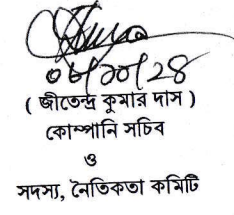 ০৮/১০/২৪
( জীতেন্দ্র কুমার দাস )
কোম্পানি সচিব
ও
সদস্য, নৈতিকতা কমিটি